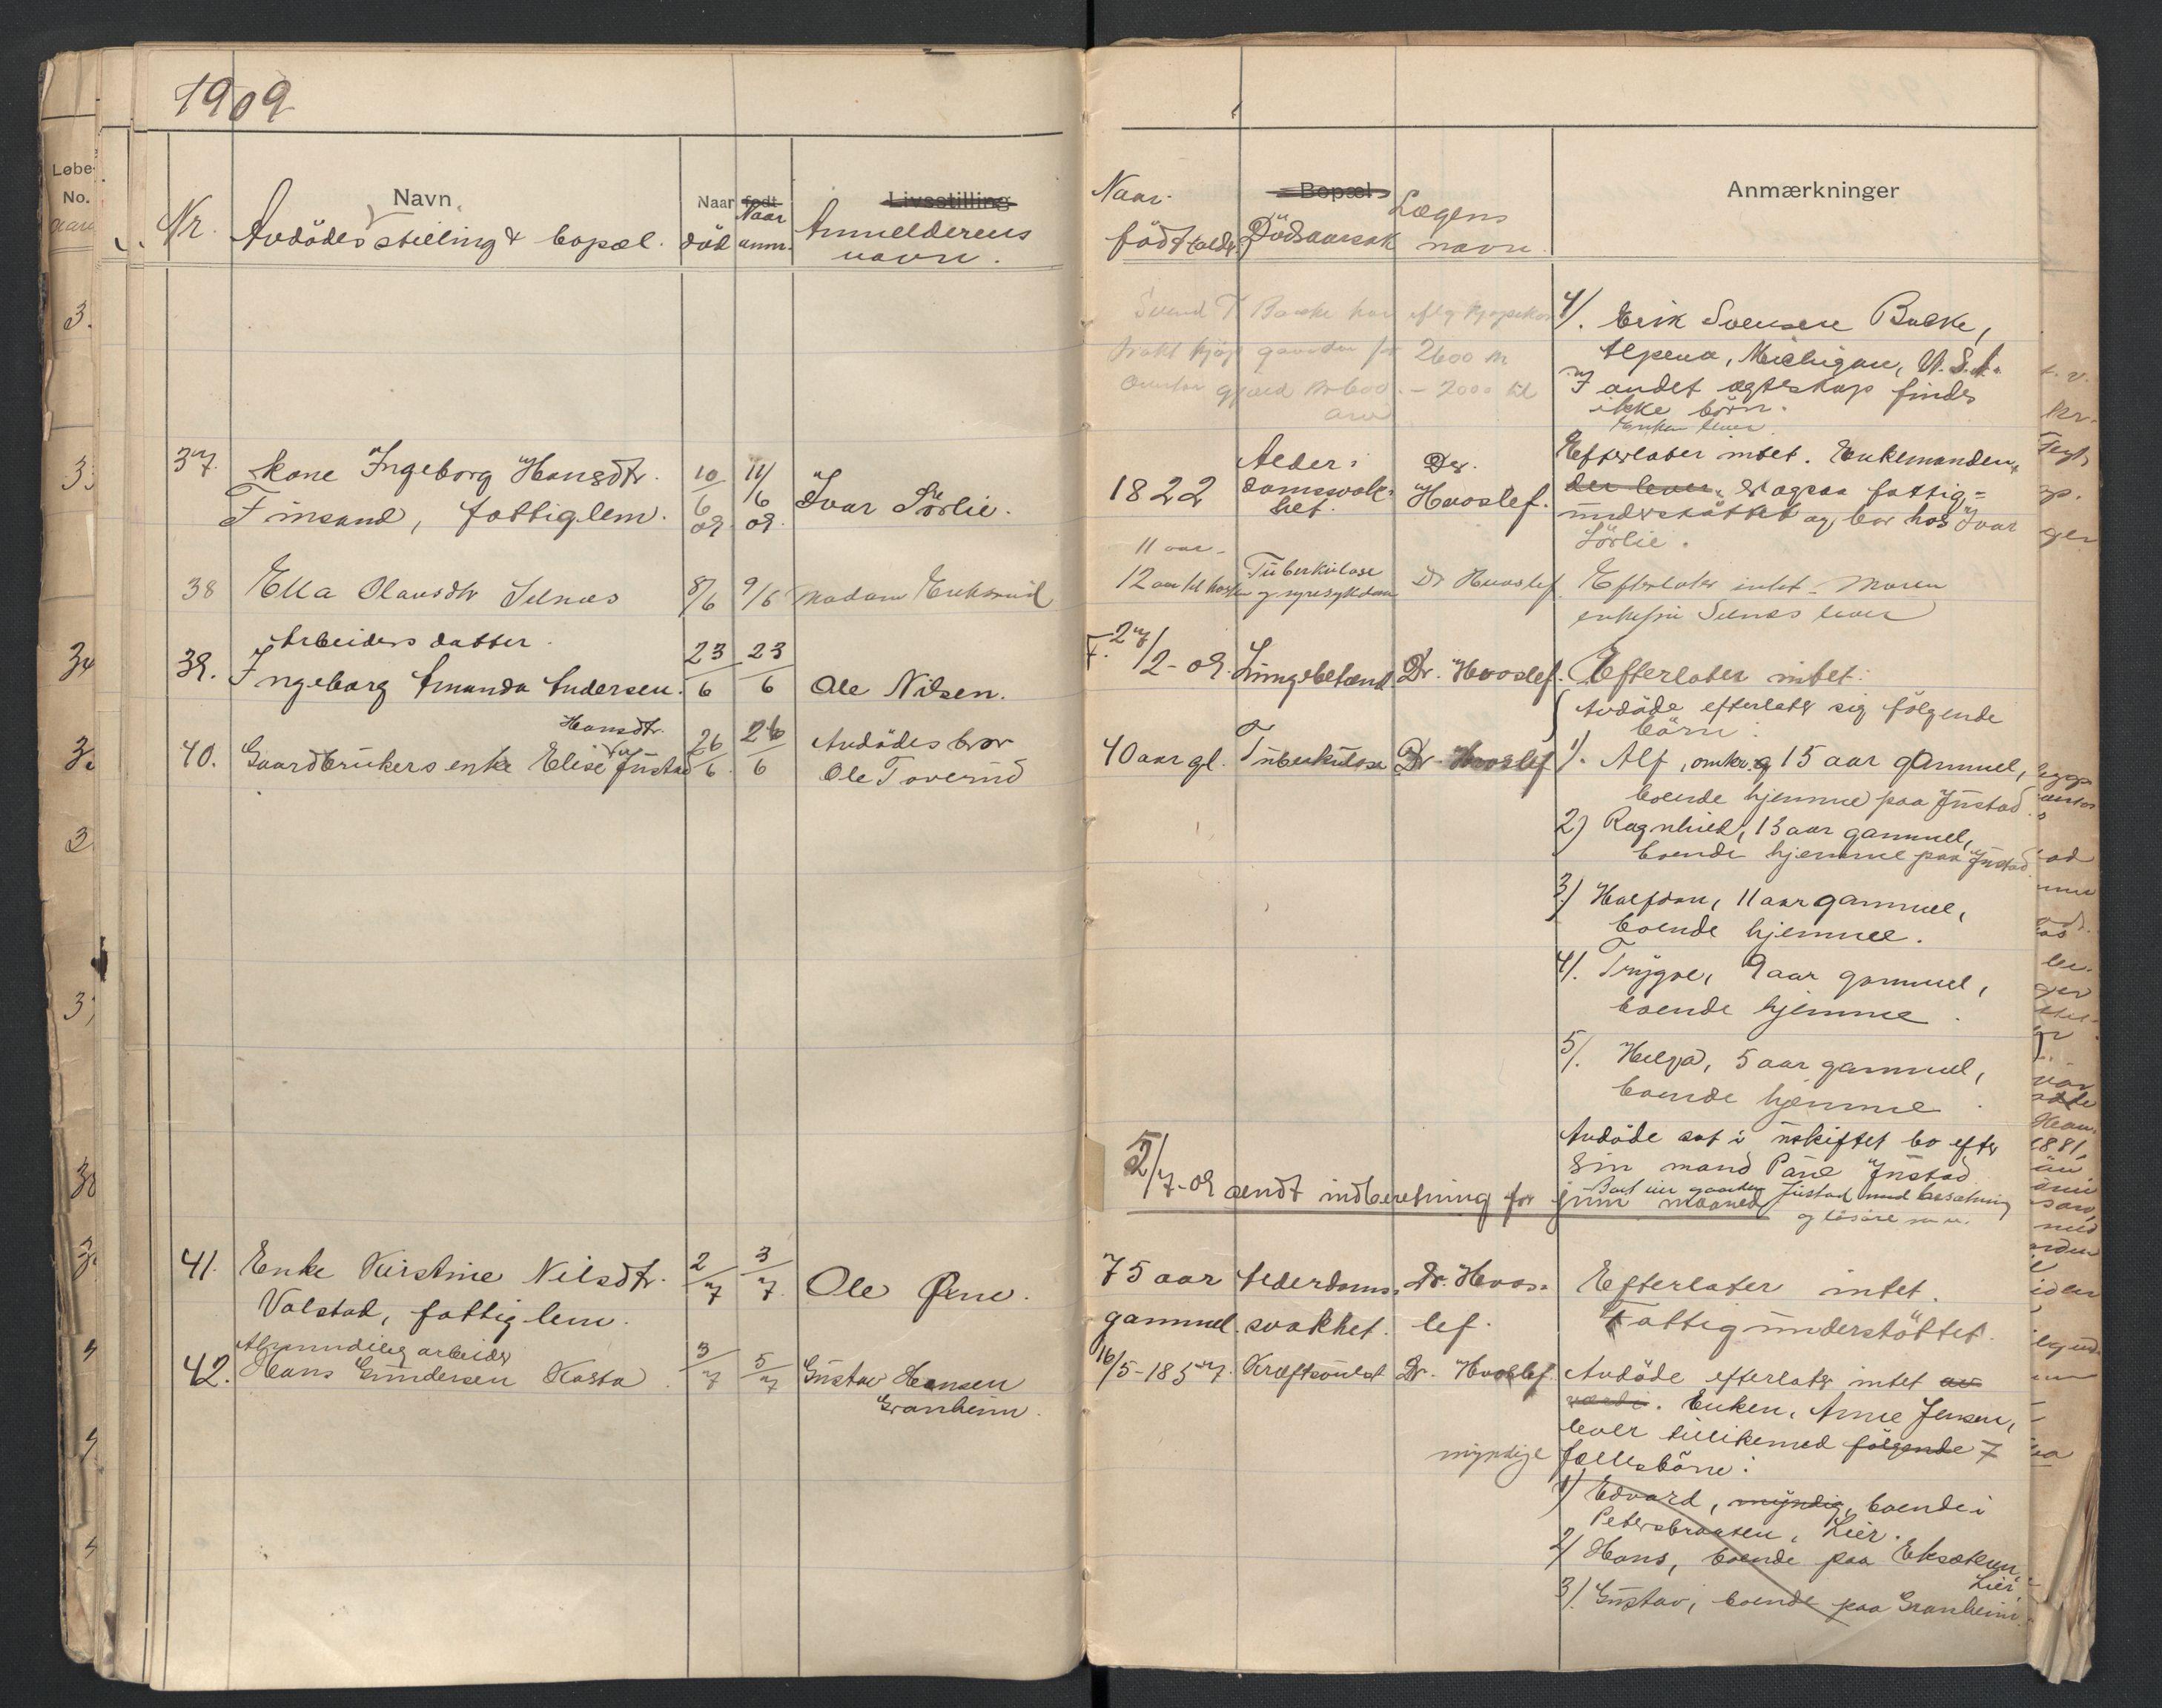 1909
Løbe-
No.
Nr.
Navn
Avdödes stilling & bopæl.
Naar
död
födt
Naar
anm.
Livsstilling
Anmelderens
navn.
Naar
födt (alder)
Bopæl
Dödsaarsak
Lægens
navn.
Anmærkninger
4/. Erik Svensen Bakke,
Alpena, Michigan, U.S.A.
I andet ægteskap findes
ikke börn.
Enken lever
37. Kone Ingeborg Hansdtr.
Finsand, fattiglem.
10/6 09.
11/6 09.
Ivar Sörlie.
1822
Alder-
domssvak-
het.
Dr.
Hvoslef.
Efterlater intet. Enkemanden,
der lever, er ogsaa fattig-
understöttet og bor hos Ivar
Sörlie.
38 Ella Olausdtr Selnæs
8/6
9/6
Madam Eriksrud
11 aar -
12 aar til høsten
Tuberkulose
og nyresykdom
Dr Hvoslef.
Efterlater intet - Moren
enkefru Selnæs lever
39. Arbeiders datter.
Ingeborg Amanda Andersen.
23/6
23/6
Ole Nilsen.
F. 27/2-09.
Lungebetænd.
Dr. Hvoslef.
Efterlater intet.
40. Gaardbrukers enke Elise Hansdtr. Justad
26/6.
26/6
Avdödes bror
Ole Toverud
40 aar gl.
Tuberkulose
Dr. Hvoslef
Avdöde efterlater sig fölgende
börn:
1/. Alf, omkring 15 aar gammel,
boende hjemme paa Justad.
2) Ragnhild, 13 aar gammel,
boende hjemme paa Justad.
3/ Halfdan, 11 aar gammel,
boende hjemme.
4/. Trygve, 9 aar gammel,
boende hjemme.
5/. Helga, 5 aar gammel,
boende hjemme.
Avdöde sat i uskiftet bo efter
sin mand Paul Justad.
Boet eier gaarden Justad med besætning
og lösöre m.m.
5/7-09 sendt indberetning for juni maaned
41. Enke Kirstine Nilsdtr.
Valstad, fattiglem.
2/7
3/7.
Ole
75 aar
gammel.
Alderdoms-
svakhet.
Dr. Hvos-
lef.
Efterlater intet.
Fattigunderstöttet.
42. Almindelig arbeider
Hans Gundersen Kasta
3/7
5/7
Gustav Hansen
Granheim.
16/5-1857.
Kræftsvulst
Dr. Hvoslef.
Avdöde efterlater intet av
værdi. Enken, Anne Jensen,
lever tillikemed fölgende 7
myndige fællesbörn:
1) Edvard, myndig, boende i
Petersbraaten, Lier.
2/ Hans, boende paa Eksækeren,
Lier
3/. Gustav, boende paa Granheim.